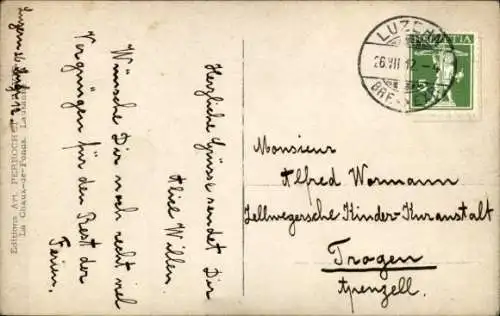 Herzliche Grüsse sendet Dir
Alice Willen.
Wünsche Dir noch recht viel
Vergnügen für den Rest der
Ferien.
Editions Art. PERROCHET
La Chaux-de-Fonds, Lausanne
LUZERN
26.VII.12.
HELVETIA
Monsieur
Alfred Wormann
Zellwegersche Kinder-Kuranstalt
Trogen
Apenzell.